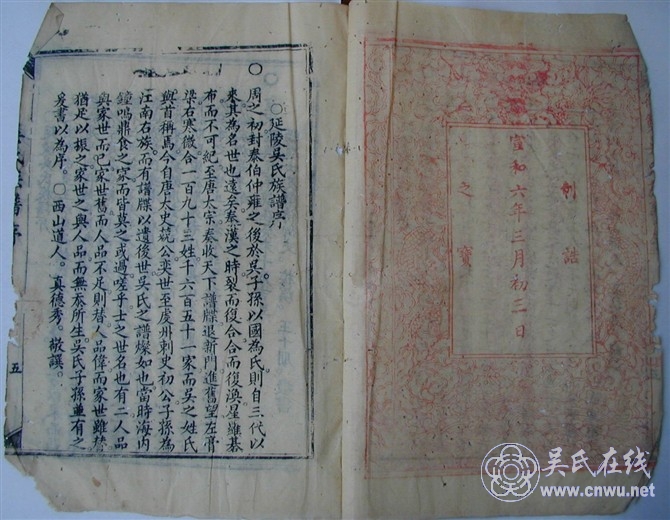 制誥
宣和六年三月初三日
之寶
○延陵吳氏族譜序
○周之初封泰伯仲雍之後於吳子孫以國為氏則自三代以
來其為名世也遠矣秦漢之時裂而復合合而復渙星羅棊
布而不可紀至唐太宗奏收天下譜牒退新門進舊望左膏
梁右寒微合一百九十三姓千六百五十一家而吳之姓氏
與首稱焉今自唐太史競公奕世至虔州刺史初公子孫為
江南右族而有譜牒以遺後世吳氏之譜燦如也當時海內
鐘鳴鼎食之家而皆莫之或過嗟乎士之世名也有二人品
與家世而已家世舊而人品不足則替人品偉而家世雖替
猶足以振之家世之興人品而無忝所生吳氏子孫並有之
爰書以為序○西山道人真德秀敬譔
五
吴氏在线
www.cnwu.net